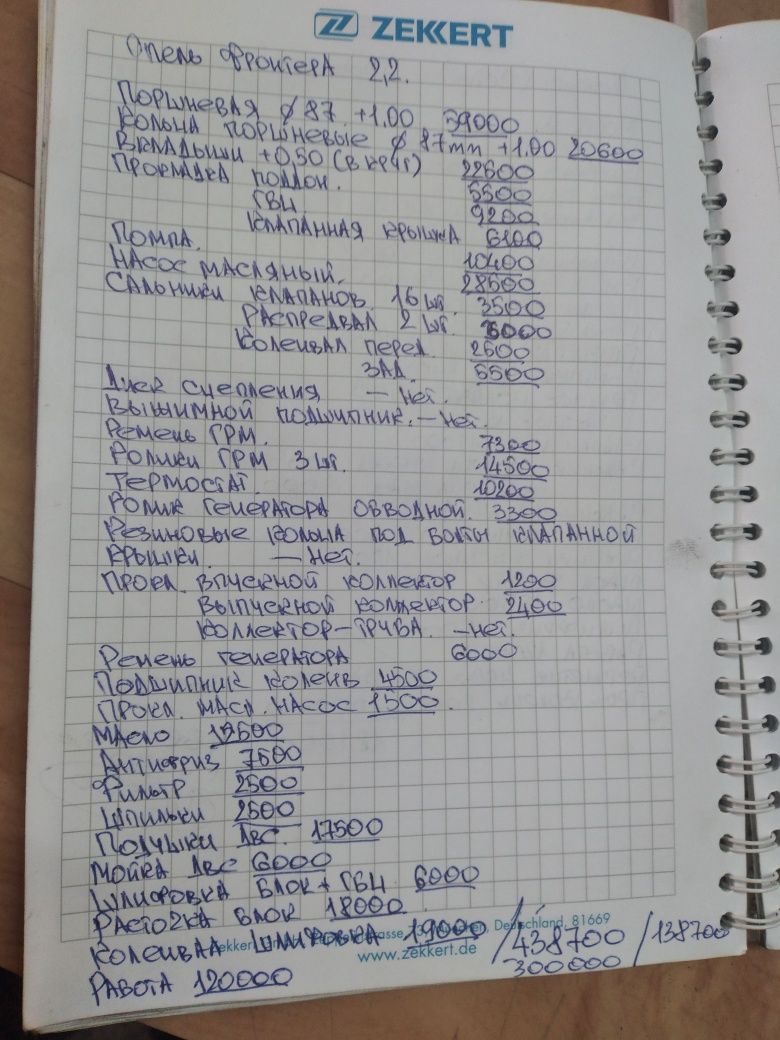 ZEKKERT
Опель Фронтера 2,2.
Поршневая ∅ 87 +1.00 59000
Кольца поршневые ∅ 87mm +1.00 20600
Вкладыши +0,50 (в круг) 22600
Прокладка поддон. 5500
ГБЦ 9200
Клапанная крышка 6100
Помпа. 10400
Насос масляный. 28500
Сальники клапанов 16 шт. 3500
Распредвал 2 шт. 6000
Коленвал перед. 2600
зад. 5500
Диск сцепления — нет.
Выжимной подшипник. — нет.
Ремень ГРМ. 7300
Ролики ГРМ 3 шт. 14500
Термостат. 10200
Ролик генератора обводной. 3300
Резиновые кольца под болты клапанной
крышки. — нет.
Прокл. впускной коллектор 1200
выпускной коллектор. 2400
коллектор-труба. — нет.
Ремень генератора 6000
Подшипник коленв 4500
Прокл. масл. насос 1500.
Масло 19500
Антифриз 7500
Фильтр 2500
Шпильки 2500
Подушки ДВС. 17500
Мойка ДВС 6000
Шлифовка блок + ГБЦ 6000
Расточка блок 18000
Deutschland, 81669
Коленвал шлифовка 19000 /438700 /138700
www.zekkert.de
300000
Работа 120000